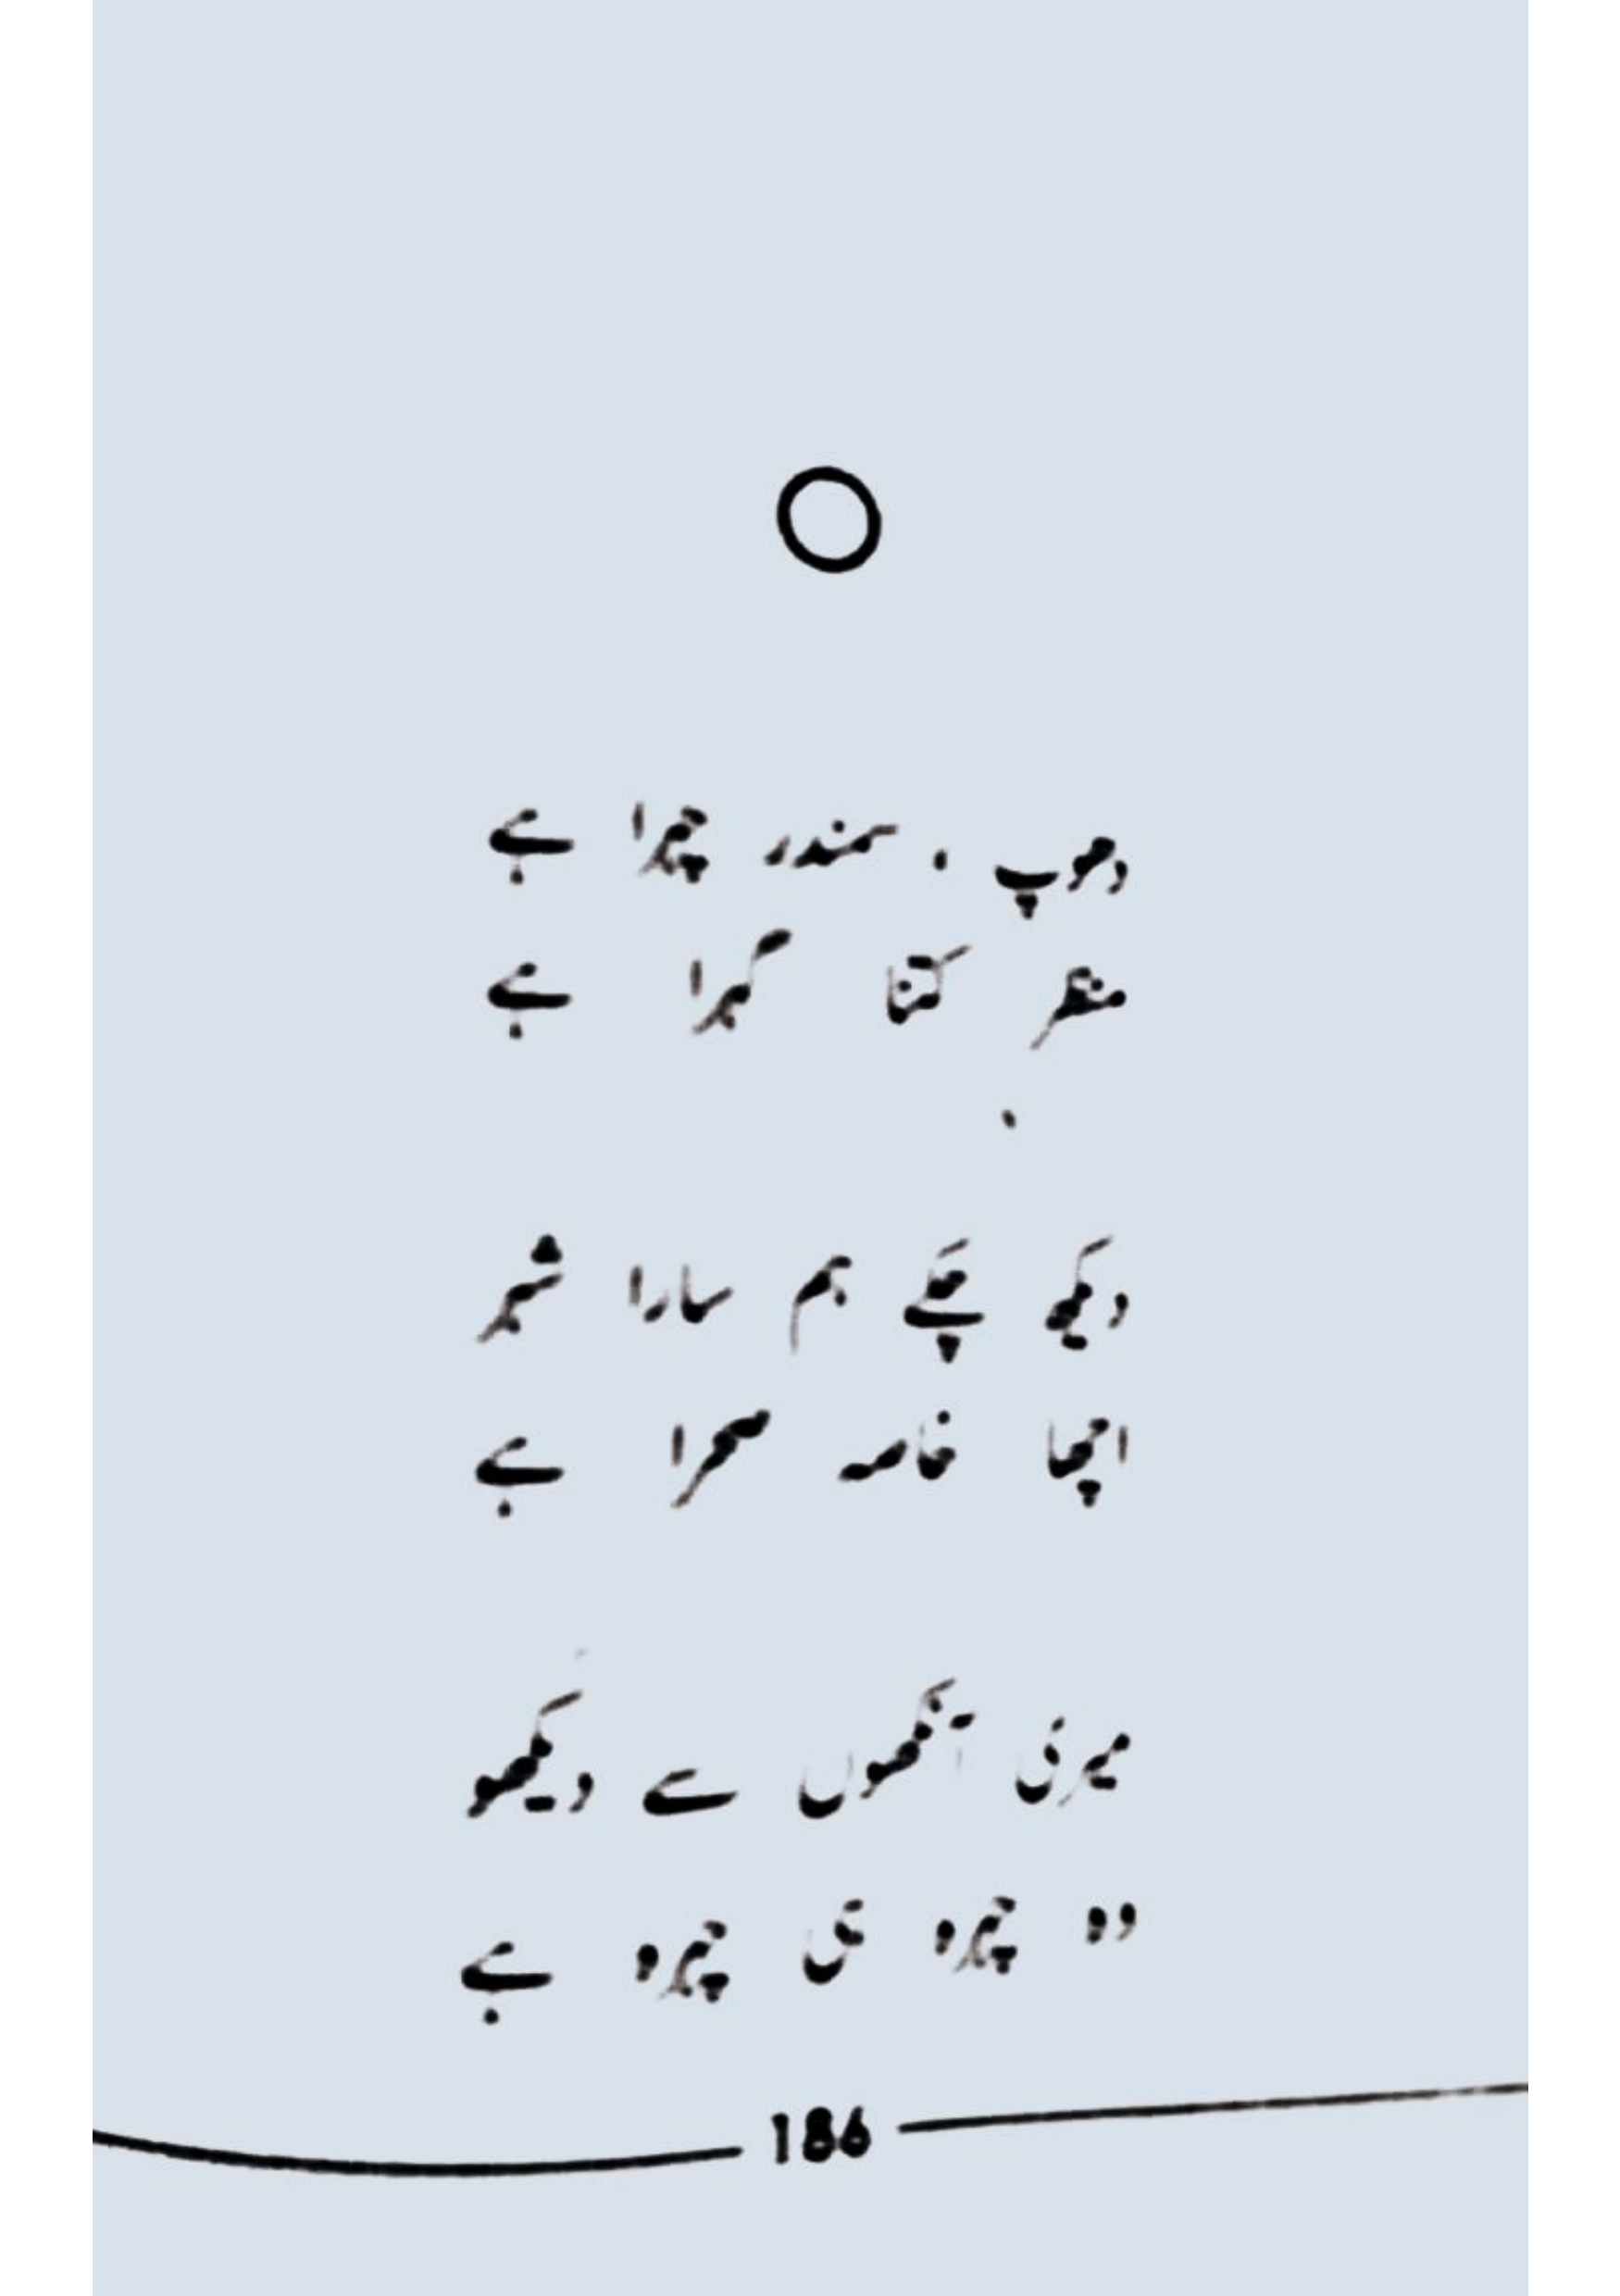 دھوپ ، سمندر چہرا ہے
منظر کتنا گہرا ہے
دیکھ چکے ہم سارا شہر
اچھا خاصہ صحرا ہے
میری آنکھوں سے دیکھو
وہ چہرہ ہی چہرہ ہے
186